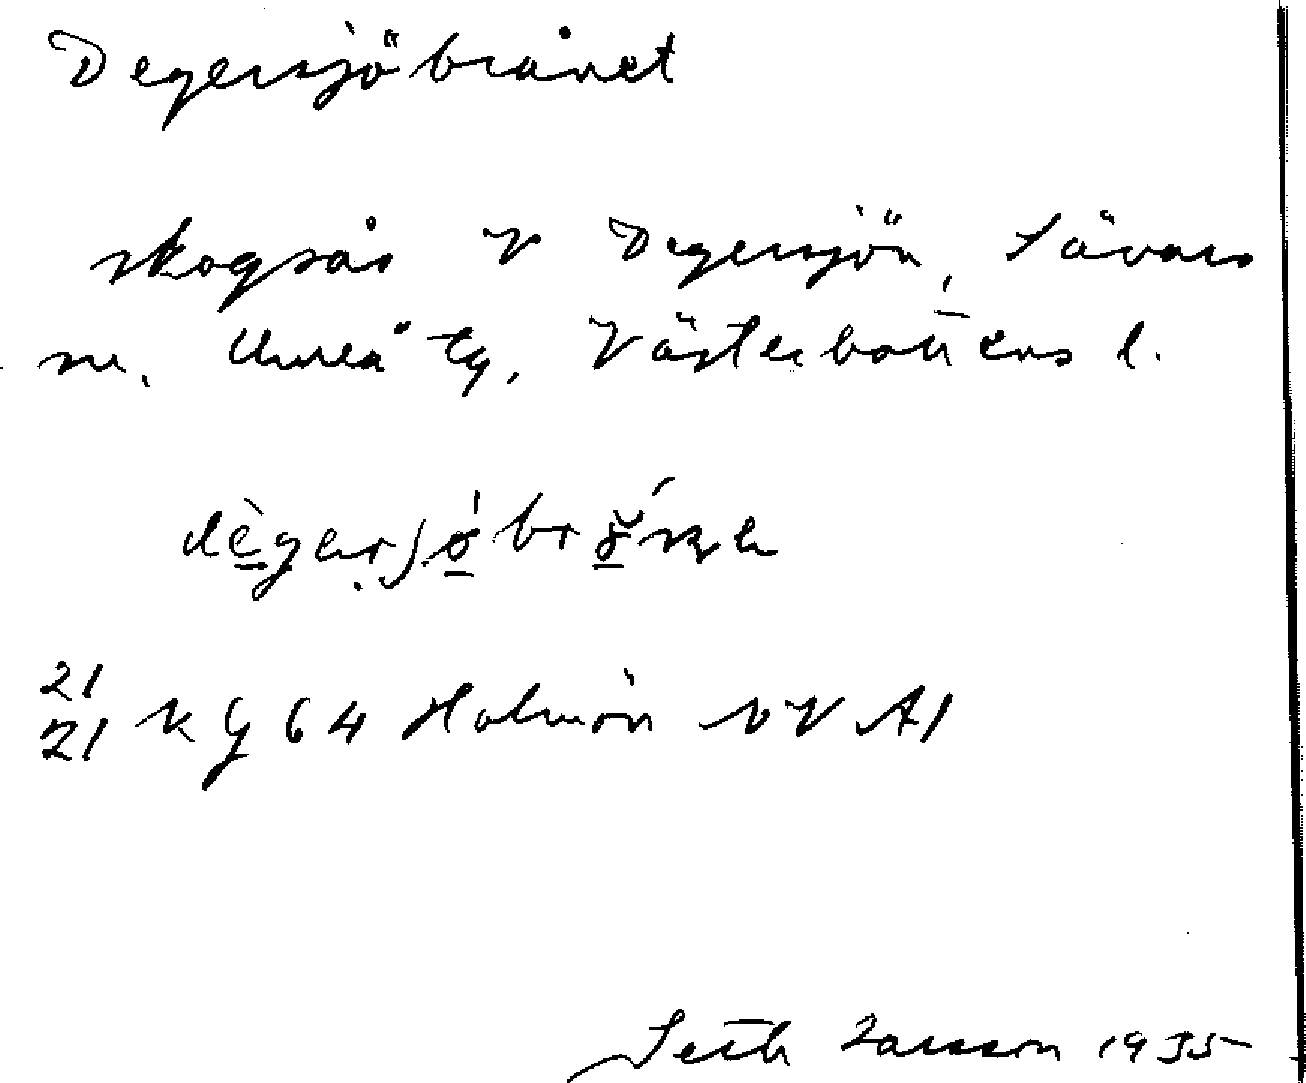 Degersjöbrånet
skogsås V Degersjön, Sävars
sn. Umeå tg, Västerbottens l.
21
21 K Y 64 Holmön NV A1
Seth Larsson 1935